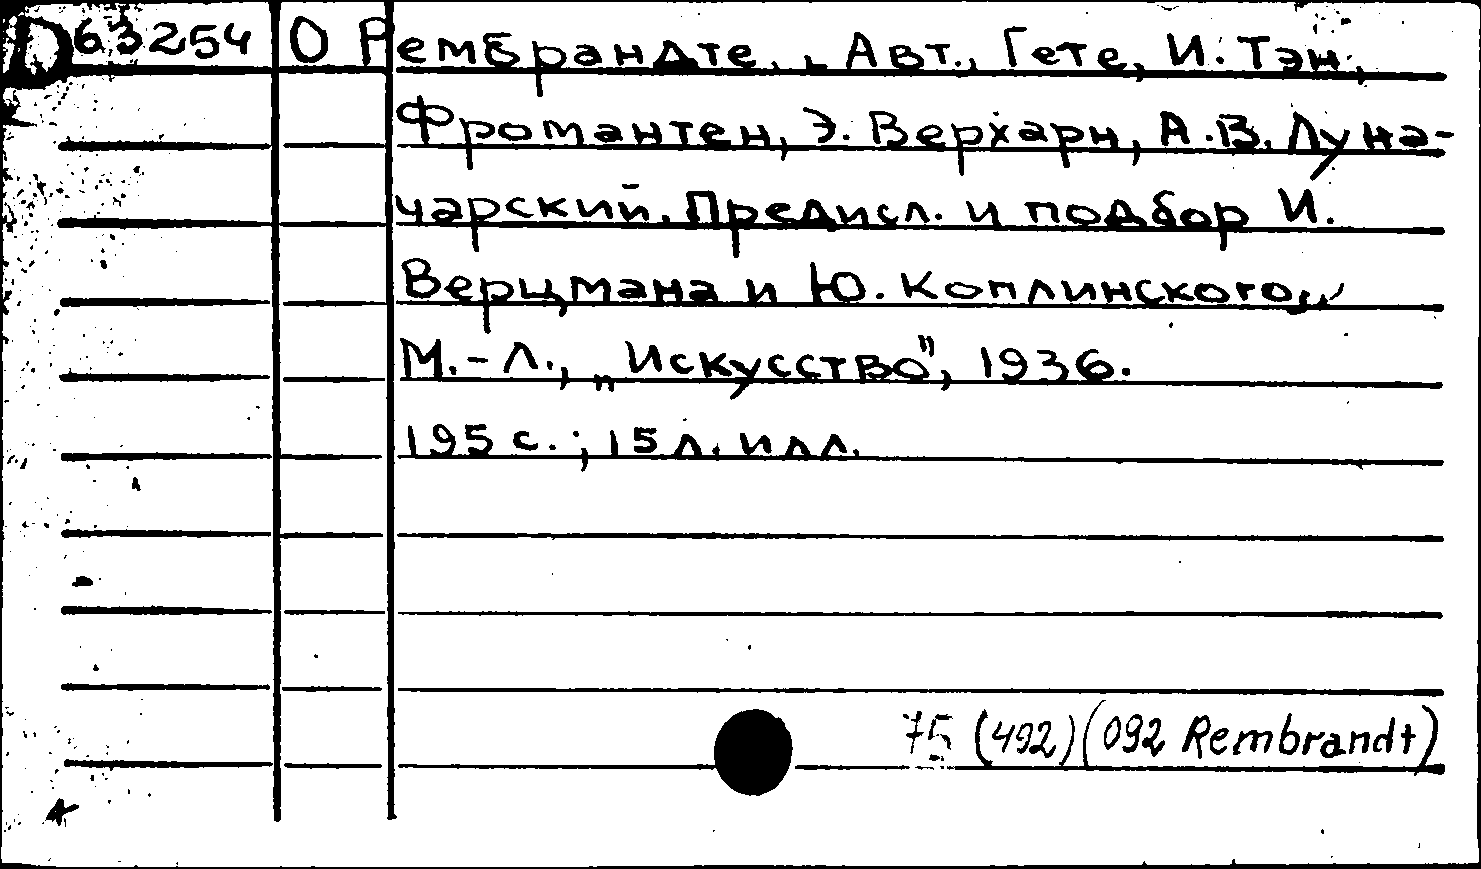 D63254 О Рембрандте. Авт., Гете, И. Тэн,
Фромантен, Э. Верхарн, А.В. Луна-
чарский. Предисл. и подбор И.
Верцмана и Ю. Коплинского,,
М.-Л., „Искусство", 1936.
195 с.; 15 л. илл.
75 (492)(092 Rembrandt)